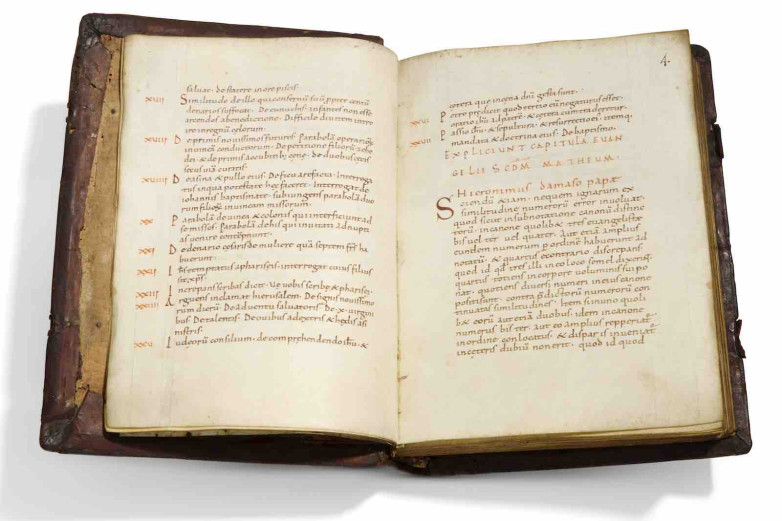 saluat. de statere in ore piscis.
XVII Similitudo de illo qui conseruū suū ppter centū
denarius suffocat. De conubiis. infantes non esse
arcendos a benedictione. Difficulo diuitem intra
re in regnum celorum.
XVIII De primis nouissimos futuros. Parabolā operariorū
in uineā conductorum. De petitione filiorū zebe
dei. & de primo accubitu cene. de duobus cecis
secus uiā curatis.
XVIIII De asina & pullo eius. De ficu arefacta. Interroga
tus in qua potestate hec faceret. Interrogat de
iohannis baptismate. subiungens parabolā duo
rum filiorū in uineam missorum.
XX Parabolā de uinea & colonis qui interficiunt ad
se missos. Parabolā de his qui inuitati ad nuptias
uenire contēpserunt.
XXI De denario cesaris de muliere quā septem frr̄ ha
buerunt.
XXII Ihs̄ temptatus a phariseis. interrogat cuius filius
sit xp̄s.
XXIII Increpans scribas dicit. Ue uobis scribe & pharisei.
XXIIII Arguens inclamat hierusalem. De signis nouissimo
rum dierū. De aduentu saluatoris. De X uirgini
bus. De talentis. De ouibus a dextris & hędis a si
nistris.
XXV Iudeorū consilium. de comprehendendo ihū. &
4.
cetera que in cena dn̄i gesta sunt.
XXVI Petre predicit quod tertio eū negaturus esset.
oratio ihū ad patrē. & cetera cum traderetur.
XXVII Passio ihū. & sepultura. & resurrectio ei. item q.
mandata & doctrina eius. De baptismo.
EXPLICIUNT CAPITULA EUAN
GELII SCDM MATHEUM.
Hieronimus damaso papae
Sciendū etiam. nequem ignarum ex
similitudine numerorū error inuoluat.
quod sicut in subnotatione canonū distinc
torū. in canone quolibet tres euangelistę
bis uel ter. uel quater. Aut etiā amplius
eundem numerum p ordinē habuerunt ad
notatū. & quartus econtrario discrepans
quod id qd tres illi in eo loco semel dixerint
quartus totiens in corpore uoluminis sui po
nat. quotiens diuersi numeri in eius canone
positi sunt. contra p̄dictorū numerorū con
tinuatas similitudines. Item si in uno quoli
bet eorū aut etiā duobus. idem in canone
numerus bis ter. aut eo amplius reppertat
in ordine conlocatus. & dispar is inueniat
in ceteris dubiū non erit. quod id quod